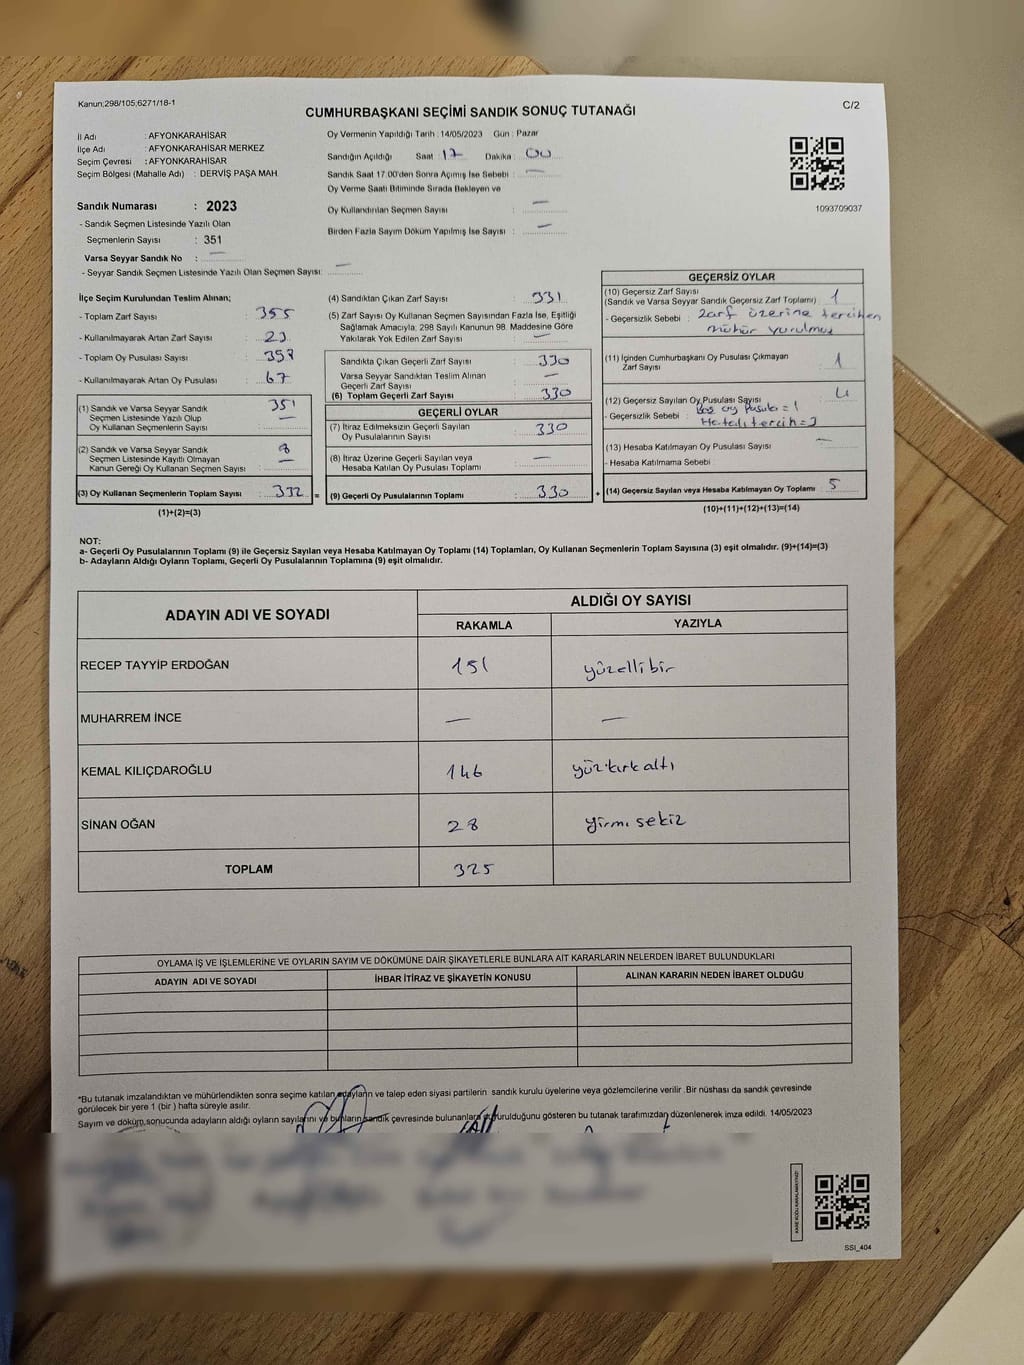 Kanun;298/105;6271/18-1
C/2
CUMHURBAŞKANI SEÇİMİ SANDIK SONUÇ TUTANAĞI
İl Adı : AFYONKARAHİSAR
İlçe Adı : AFYONKARAHİSAR MERKEZ
Seçim Çevresi : AFYONKARAHİSAR
Seçim Bölgesi (Mahalle Adı) : DERVİŞ PAŞA MAH.
Sandık Numarası : 2023
- Sandık Seçmen Listesinde Yazılı Olan
Seçmenlerin Sayısı : 351
Varsa Seyyar Sandık No : —
- Seyyar Sandık Seçmen Listesinde Yazılı Olan Seçmen Sayısı: —
Oy Vermenin Yapıldığı Tarih : 14/05/2023 Gün : Pazar
Sandığın Açıldığı Saat : 17 Dakika : 00
Sandık Saat 17.00'den Sonra Açımış İse Sebebi : —
Oy Verme Saati Bitiminde Sırada Bekleyen ve
Oy Kullandırılan Seçmen Sayısı : —
Birden Fazla Sayım Döküm Yapılmış İse Sayısı : —
1093709037
İlçe Seçim Kurulundan Teslim Alınan;
- Toplam Zarf Sayısı : 355
- Kullanılmayarak Artan Zarf Sayısı : 23
- Toplam Oy Pusulası Sayısı : 398
- Kullanılmayarak Artan Oy Pusulası : 67
(1) Sandık ve Varsa Seyyar Sandık
Seçmen Listesinde Yazılı Olup
Oy Kullanan Seçmenlerin Sayısı : 351 —
(2) Sandık ve Varsa Seyyar Sandık
Seçmen Listesinde Kayıtlı Olmayan
Kanun Gereği Oy Kullanan Seçmen Sayısı : 8 —
(3) Oy Kullanan Seçmenlerin Toplam Sayısı : 332 =
(1)+(2)=(3)
(4) Sandıktan Çıkan Zarf Sayısı : 331
(5) Zarf Sayısı Oy Kullanan Seçmen Sayısından Fazla İse, Eşitliği
Sağlamak Amacıyla; 298 Sayılı Kanunun 98. Maddesine Göre
Yakılarak Yok Edilen Zarf Sayısı : —
Sandıkta Çıkan Geçerli Zarf Sayısı : 330
Varsa Seyyar Sandıktan Teslim Alınan
Geçerli Zarf Sayısı : —
(6) Toplam Geçerli Zarf Sayısı : 330
GEÇERLİ OYLAR
(7) İtiraz Edilmeksizin Geçerli Sayılan
Oy Pusulalarının Sayısı : 330
(8) İtiraz Üzerine Geçerli Sayılan veya
Hesaba Katılan Oy Pusulası Toplamı : —
(9) Geçerli Oy Pusulalarının Toplamı : 330 +
GEÇERSİZ OYLAR
(10) Geçersiz Zarf Sayısı
(Sandık ve Varsa Seyyar Sandık Geçersiz Zarf Toplamı) : 1
- Geçersizlik Sebebi : Zarf üzerine tercihen
mühür vurulmuş
(11) İçinden Cumhurbaşkanı Oy Pusulası Çıkmayan
Zarf Sayısı : 1
(12) Geçersiz Sayılan Oy Pusulası Sayısı : 4
- Geçersizlik Sebebi : Boş oy pusula = 1
Hatalı tercih = 3
(13) Hesaba Katılmayan Oy Pusulası Sayısı : —
- Hesaba Katılmama Sebebi
(14) Geçersiz Sayılan veya Hesaba Katılmayan Oy Toplamı : 5
(10)+(11)+(12)+(13)=(14)
NOT:
a- Geçerli Oy Pusulalarının Toplamı (9) ile Geçersiz Sayılan veya Hesaba Katılmayan Oy Toplamı (14) Toplamları, Oy Kullanan Seçmenlerin Toplam Sayısına (3) eşit olmalıdır. (9)+(14)=(3)
b- Adayların Aldığı Oyların Toplamı, Geçerli Oy Pusulalarının Toplamına (9) eşit olmalıdır.
ADAYIN ADI VE SOYADI
ALDIĞI OY SAYISI
RAKAMLA YAZIYLA
RECEP TAYYİP ERDOĞAN 151 yüzellibir
MUHARREM İNCE — —
KEMAL KILIÇDAROĞLU 146 yüzkırkaltı
SİNAN OĞAN 28 yirmi sekiz
TOPLAM 325
OYLAMA İŞ VE İŞLEMLERİNE VE OYLARIN SAYIM VE DÖKÜMÜNE DAİR ŞİKAYETLERLE BUNLARA AİT KARARLARIN NELERDEN İBARET BULUNDUKLARI
ADAYIN ADI VE SOYADI İHBAR İTİRAZ VE ŞİKAYETİN KONUSU ALINAN KARARIN NEDEN İBARET OLDUĞU
*Bu tutanak imzalandıktan ve mühürlendikten sonra seçime katılan adayların ve talep eden siyasi partilerin sandık kurulu üyelerine veya gözlemcilerine verilir .Bir nüshası da sandık çevresinde
görülecek bir yere 1 (bir ) hafta süreyle asılır.
Sayım ve döküm sonucunda adayların aldığı oyların sayılarını ve bunların sandık çevresinde bulunanlara duyurulduğunu gösteren bu tutanak tarafımızdan düzenlenerek imza edildi. 14/05/2023
SSI_404